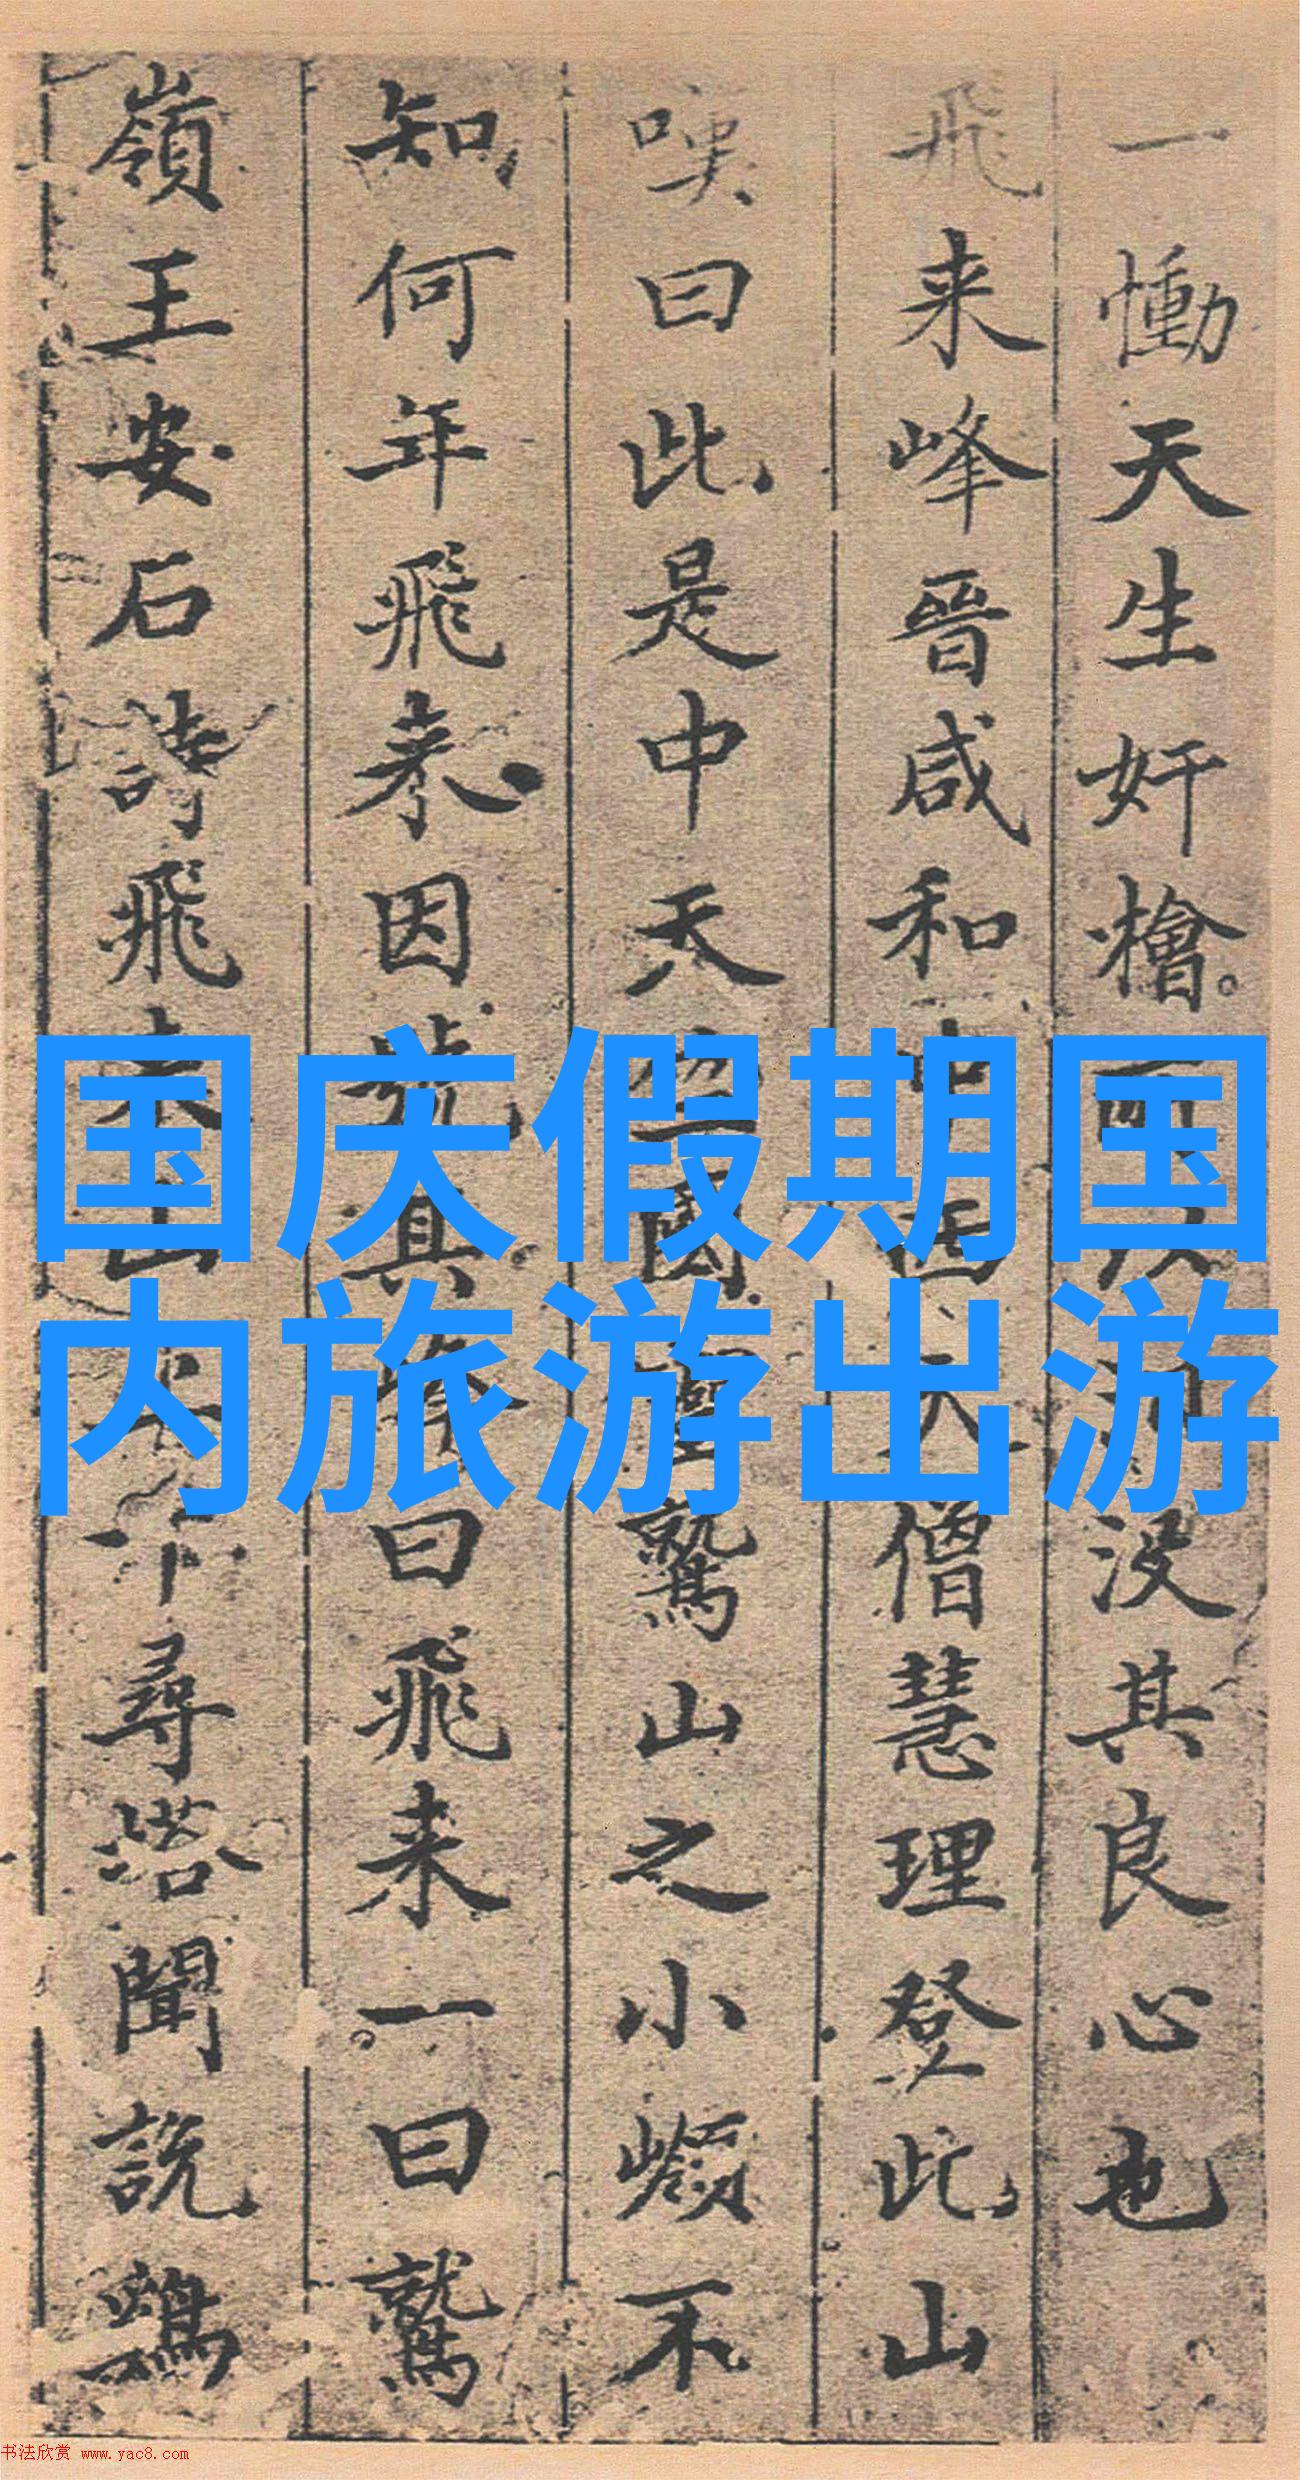 一慟天生奸檜
没其良心也
飛来峰晉咸和
僧慧理登此山
嘆曰此是中天竺國靈鷲山之小嶺不
知何年飛来因號其峰曰飛来一曰鷲
嶺王安石詩飛来山上千尋塔聞説鷄
国庆假期国
内旅游出游
书法欣赏 www.yac8.com